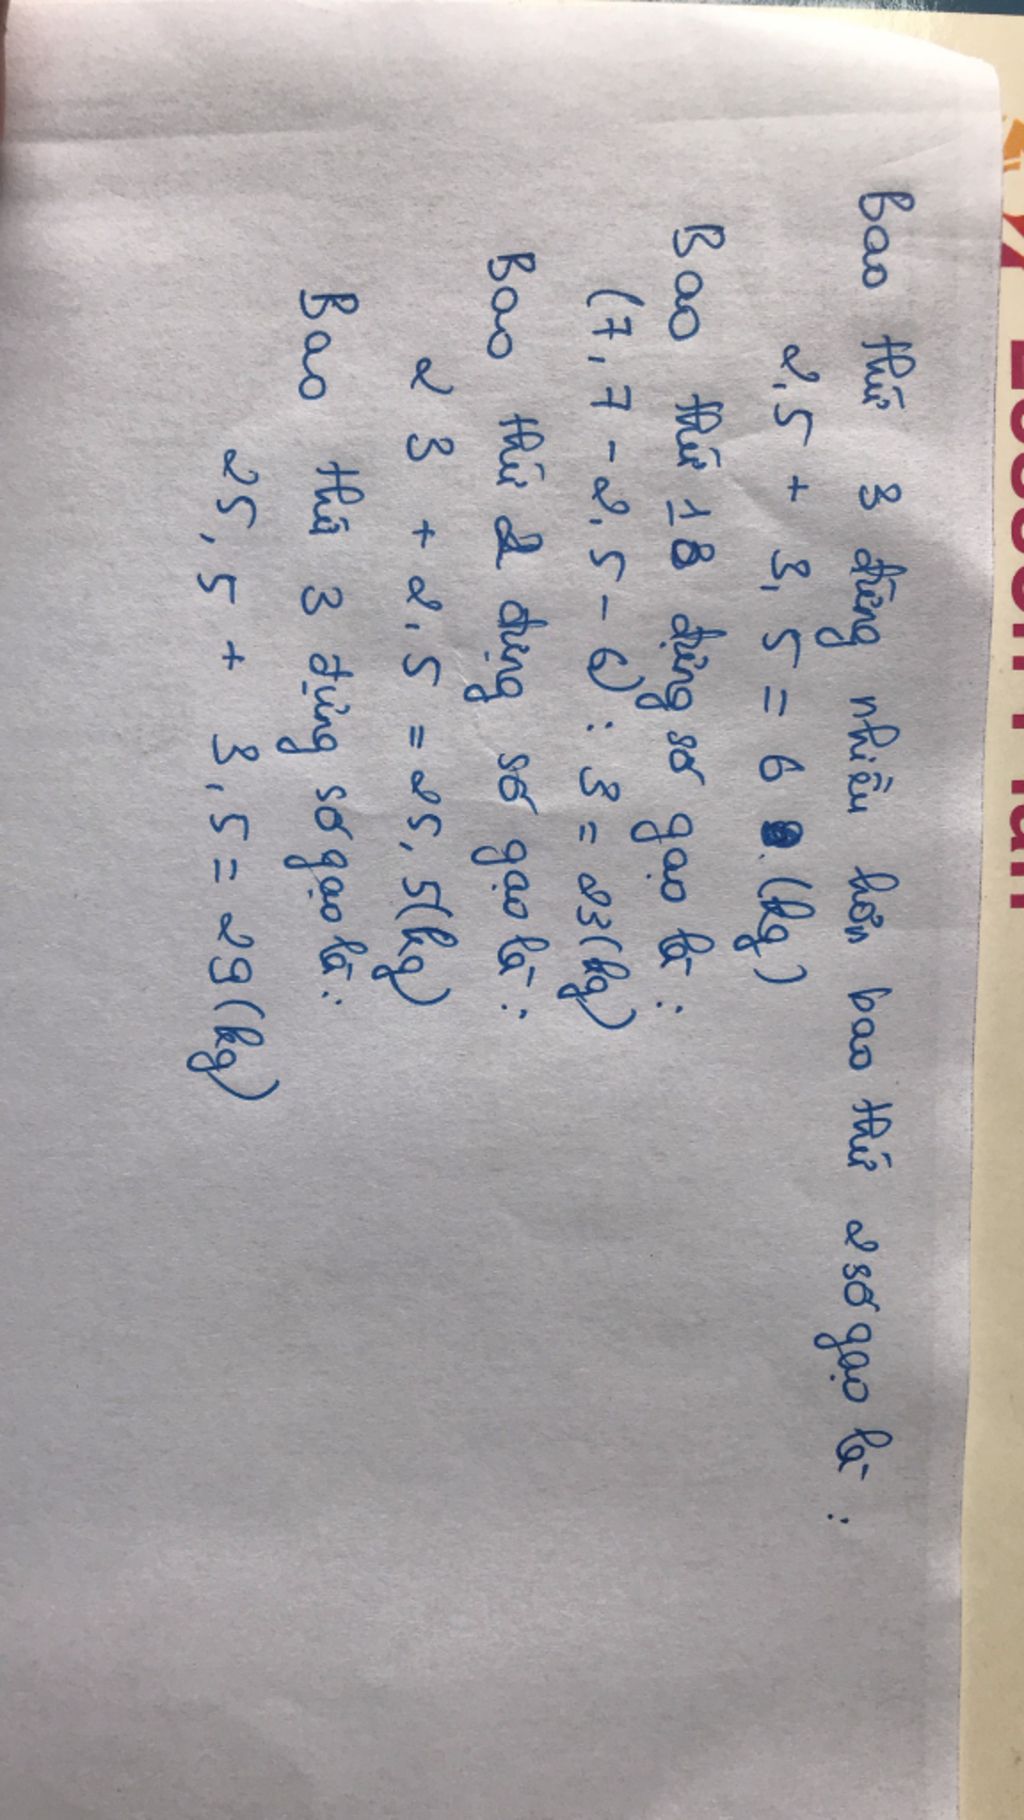 Bao thứ 3 đựng nhiều hơn bao thứ 2 số gạo là :
2,5 + 3,5 = 6 (kg)
Bao thứ 1 đựng số gạo là :
(7,7 - 2,5 - 6) : 3 = 23 (kg)
Bao thứ 2 đựng số gạo là :
23 + 2,5 = 25,5 (kg)
Bao thứ 3 đựng số gạo là :
25,5 + 3,5 = 29 (kg)